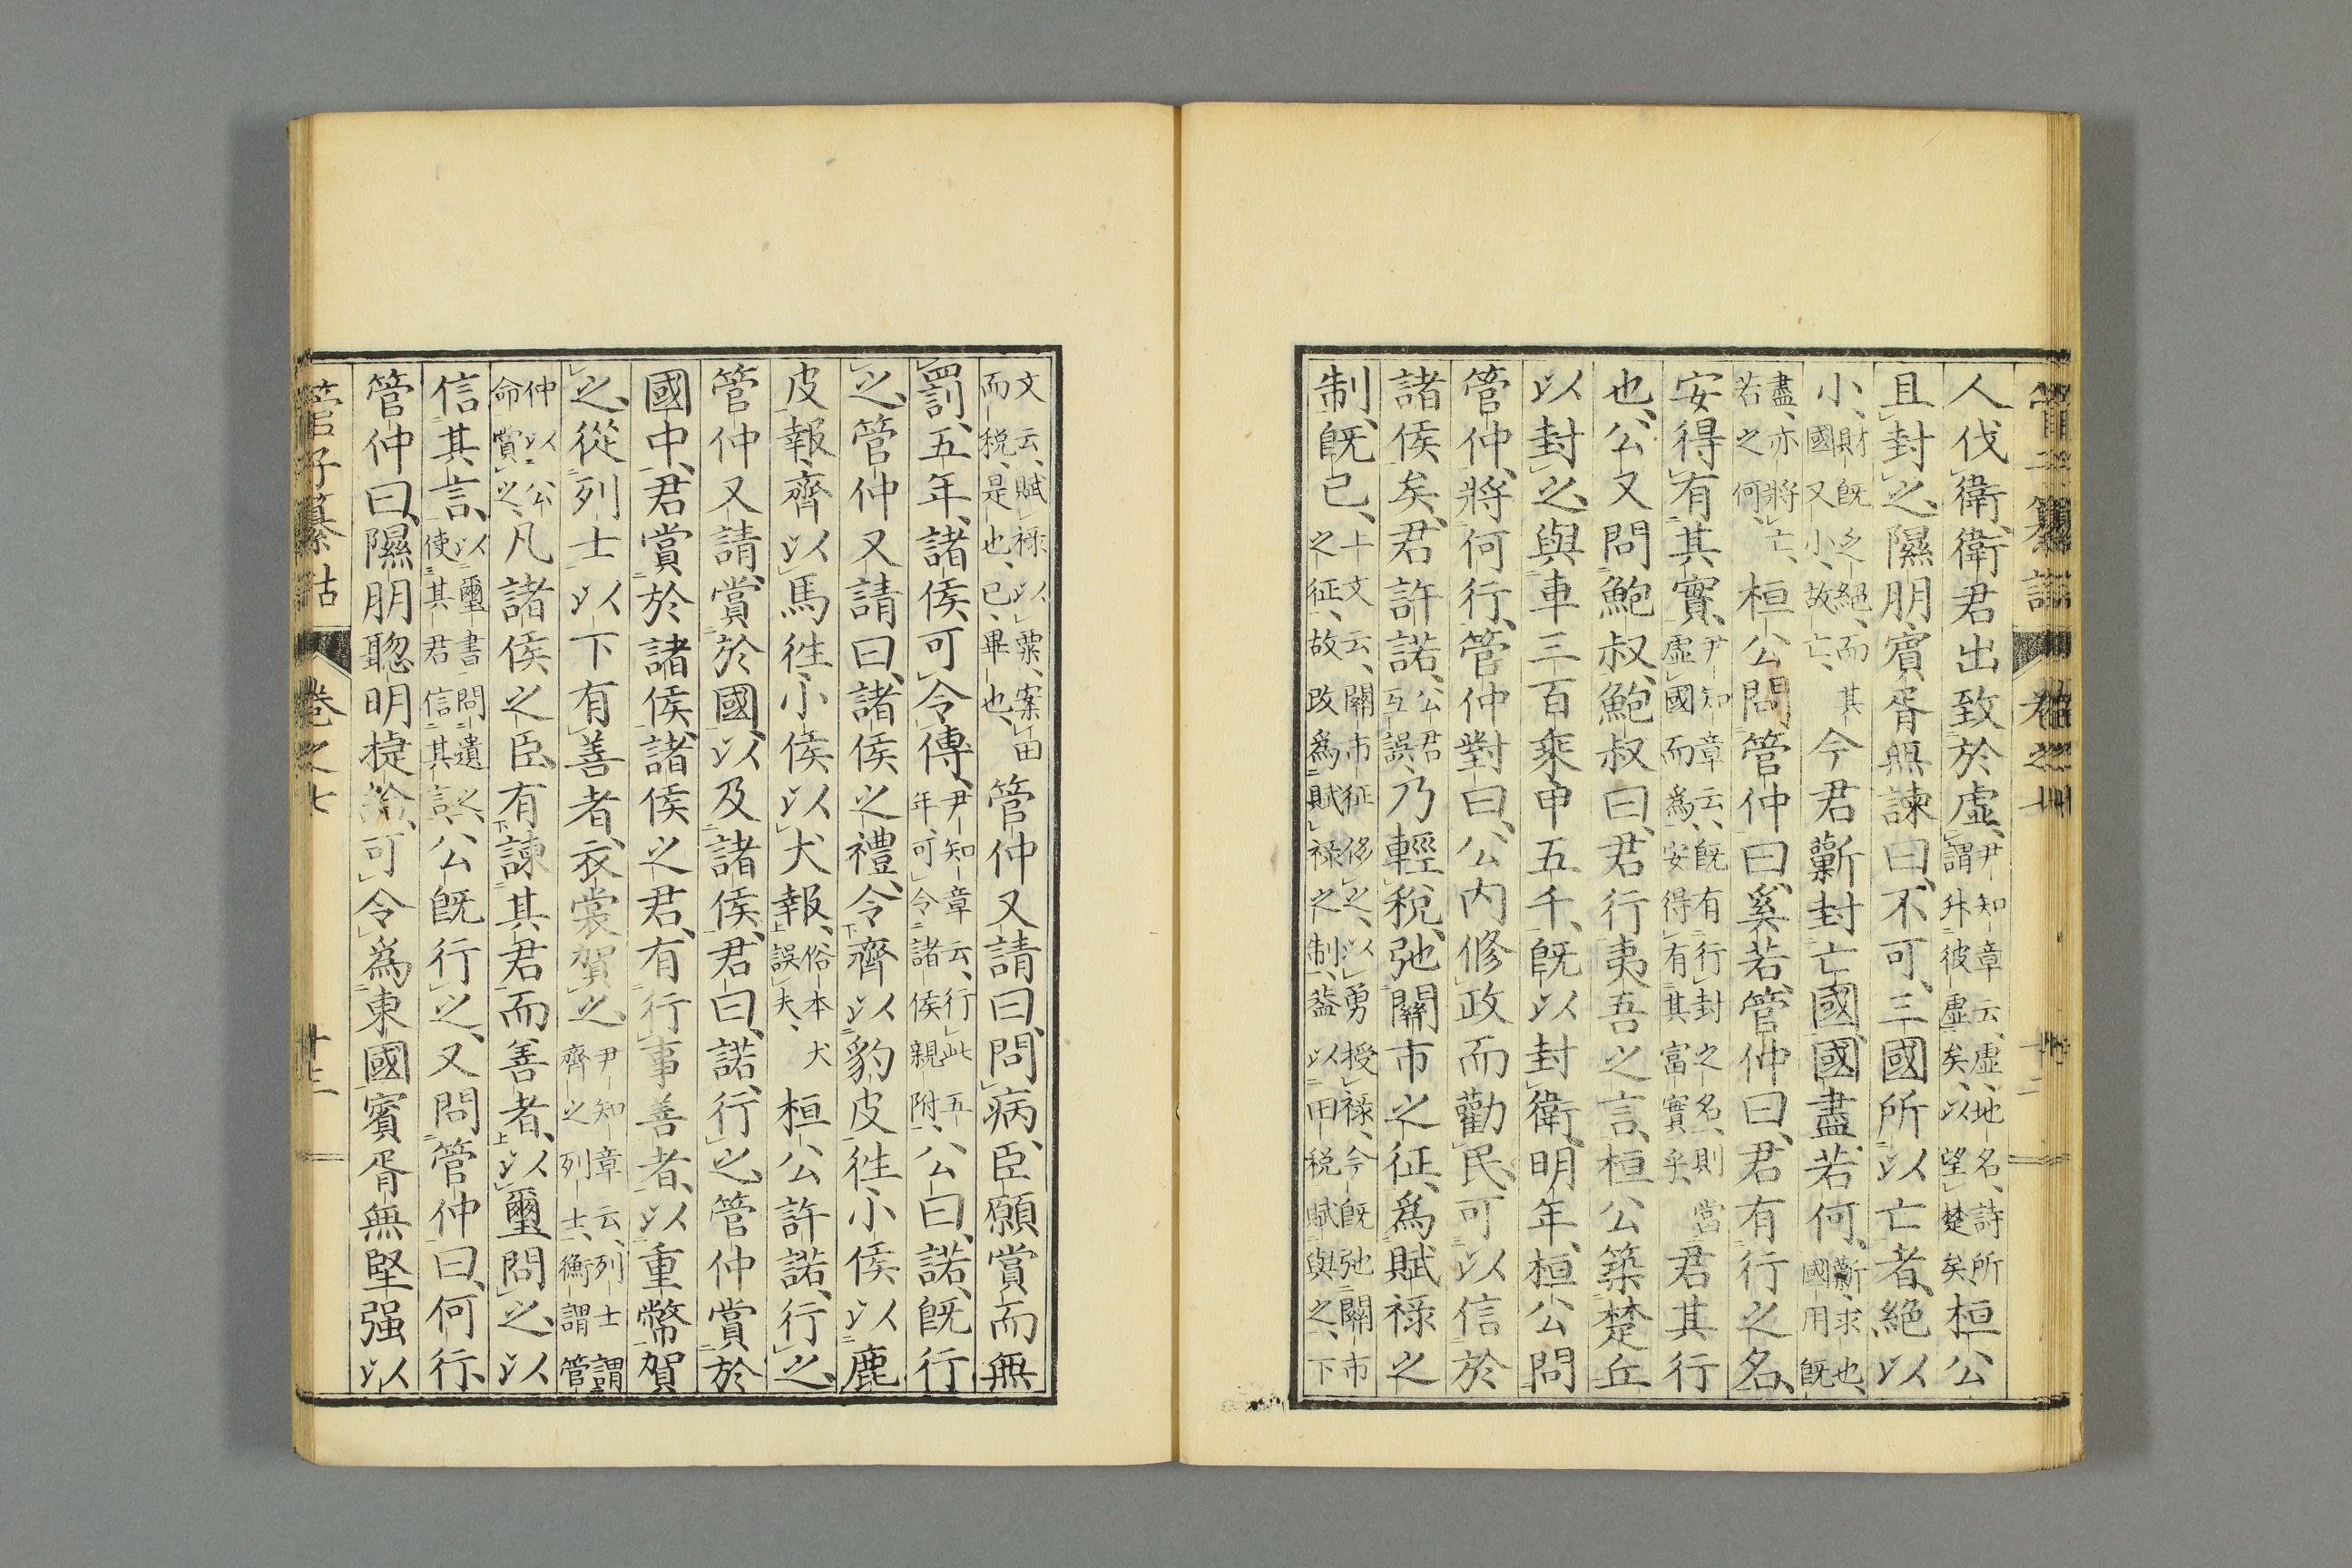 管子纂詁 卷之七 十二
人伐衛、衛君出致於虛、尹知章云、虛、地名、詩所謂升彼虛矣、以望楚矣桓公
且封之、隰朋賓胥無諫曰、不可、三國所以亡者、絕以
小、財既之絕、而其國又小、故亡、今君蘄封亡國、國盡若何、蘄、求也、國用既
盡、亦將亡、若之何、桓公問管仲曰、奚若、管仲曰、君有行之名、
安得有其實、尹知章云、既有行封之名、則當虛國而為、安得有其富實矣、君其行
也、公又問鮑叔、鮑叔曰、君行夷吾之言、桓公築楚丘
以封之、與車三百乘甲五千、既以封衛、明年、桓公問
管仲、將何行、管仲對曰、公內修政而勸民、可以信於
諸侯矣、君許諾、公君互誤、乃輕稅、弛關市之征、為賦祿之
制、既已、上文云、關市征侈之、以勇授祿、今既弛關市之征、故改為賦祿之制、蓋以田稅賦與之、下
文云、賦祿以粟、案田而稅、是也、已、畢也、管仲又請曰、問病、臣願賞而無
罰、五年、諸侯可令傅、尹知章云、行此五年、可令諸侯親附、公曰、諾、既行
之、管仲又請曰、諸侯之禮、令齊以豹皮往、小侯以鹿
皮報、齊以馬往、小侯以犬報、俗本犬誤夫、桓公許諾、行之、
管仲又請、賞於國、以及諸侯、君曰、諾、行之、管仲賞於
國中、君賞於諸侯、諸侯之君、有行事善者、以重幣賀
之、從列士以下有善者、衣裳賀之、尹知章云、列士謂齊之列士、衡謂管
仲以公命賞之、凡諸侯之臣、有諫其君而善者、以璽問之、以
信其言、以璽書問遺之、使其君信其言、公既行之、又問管仲曰、何行、
管仲曰、隰朋聰明捷給、可令為東國、賓胥無堅强以
管子纂詁 卷之七 十二